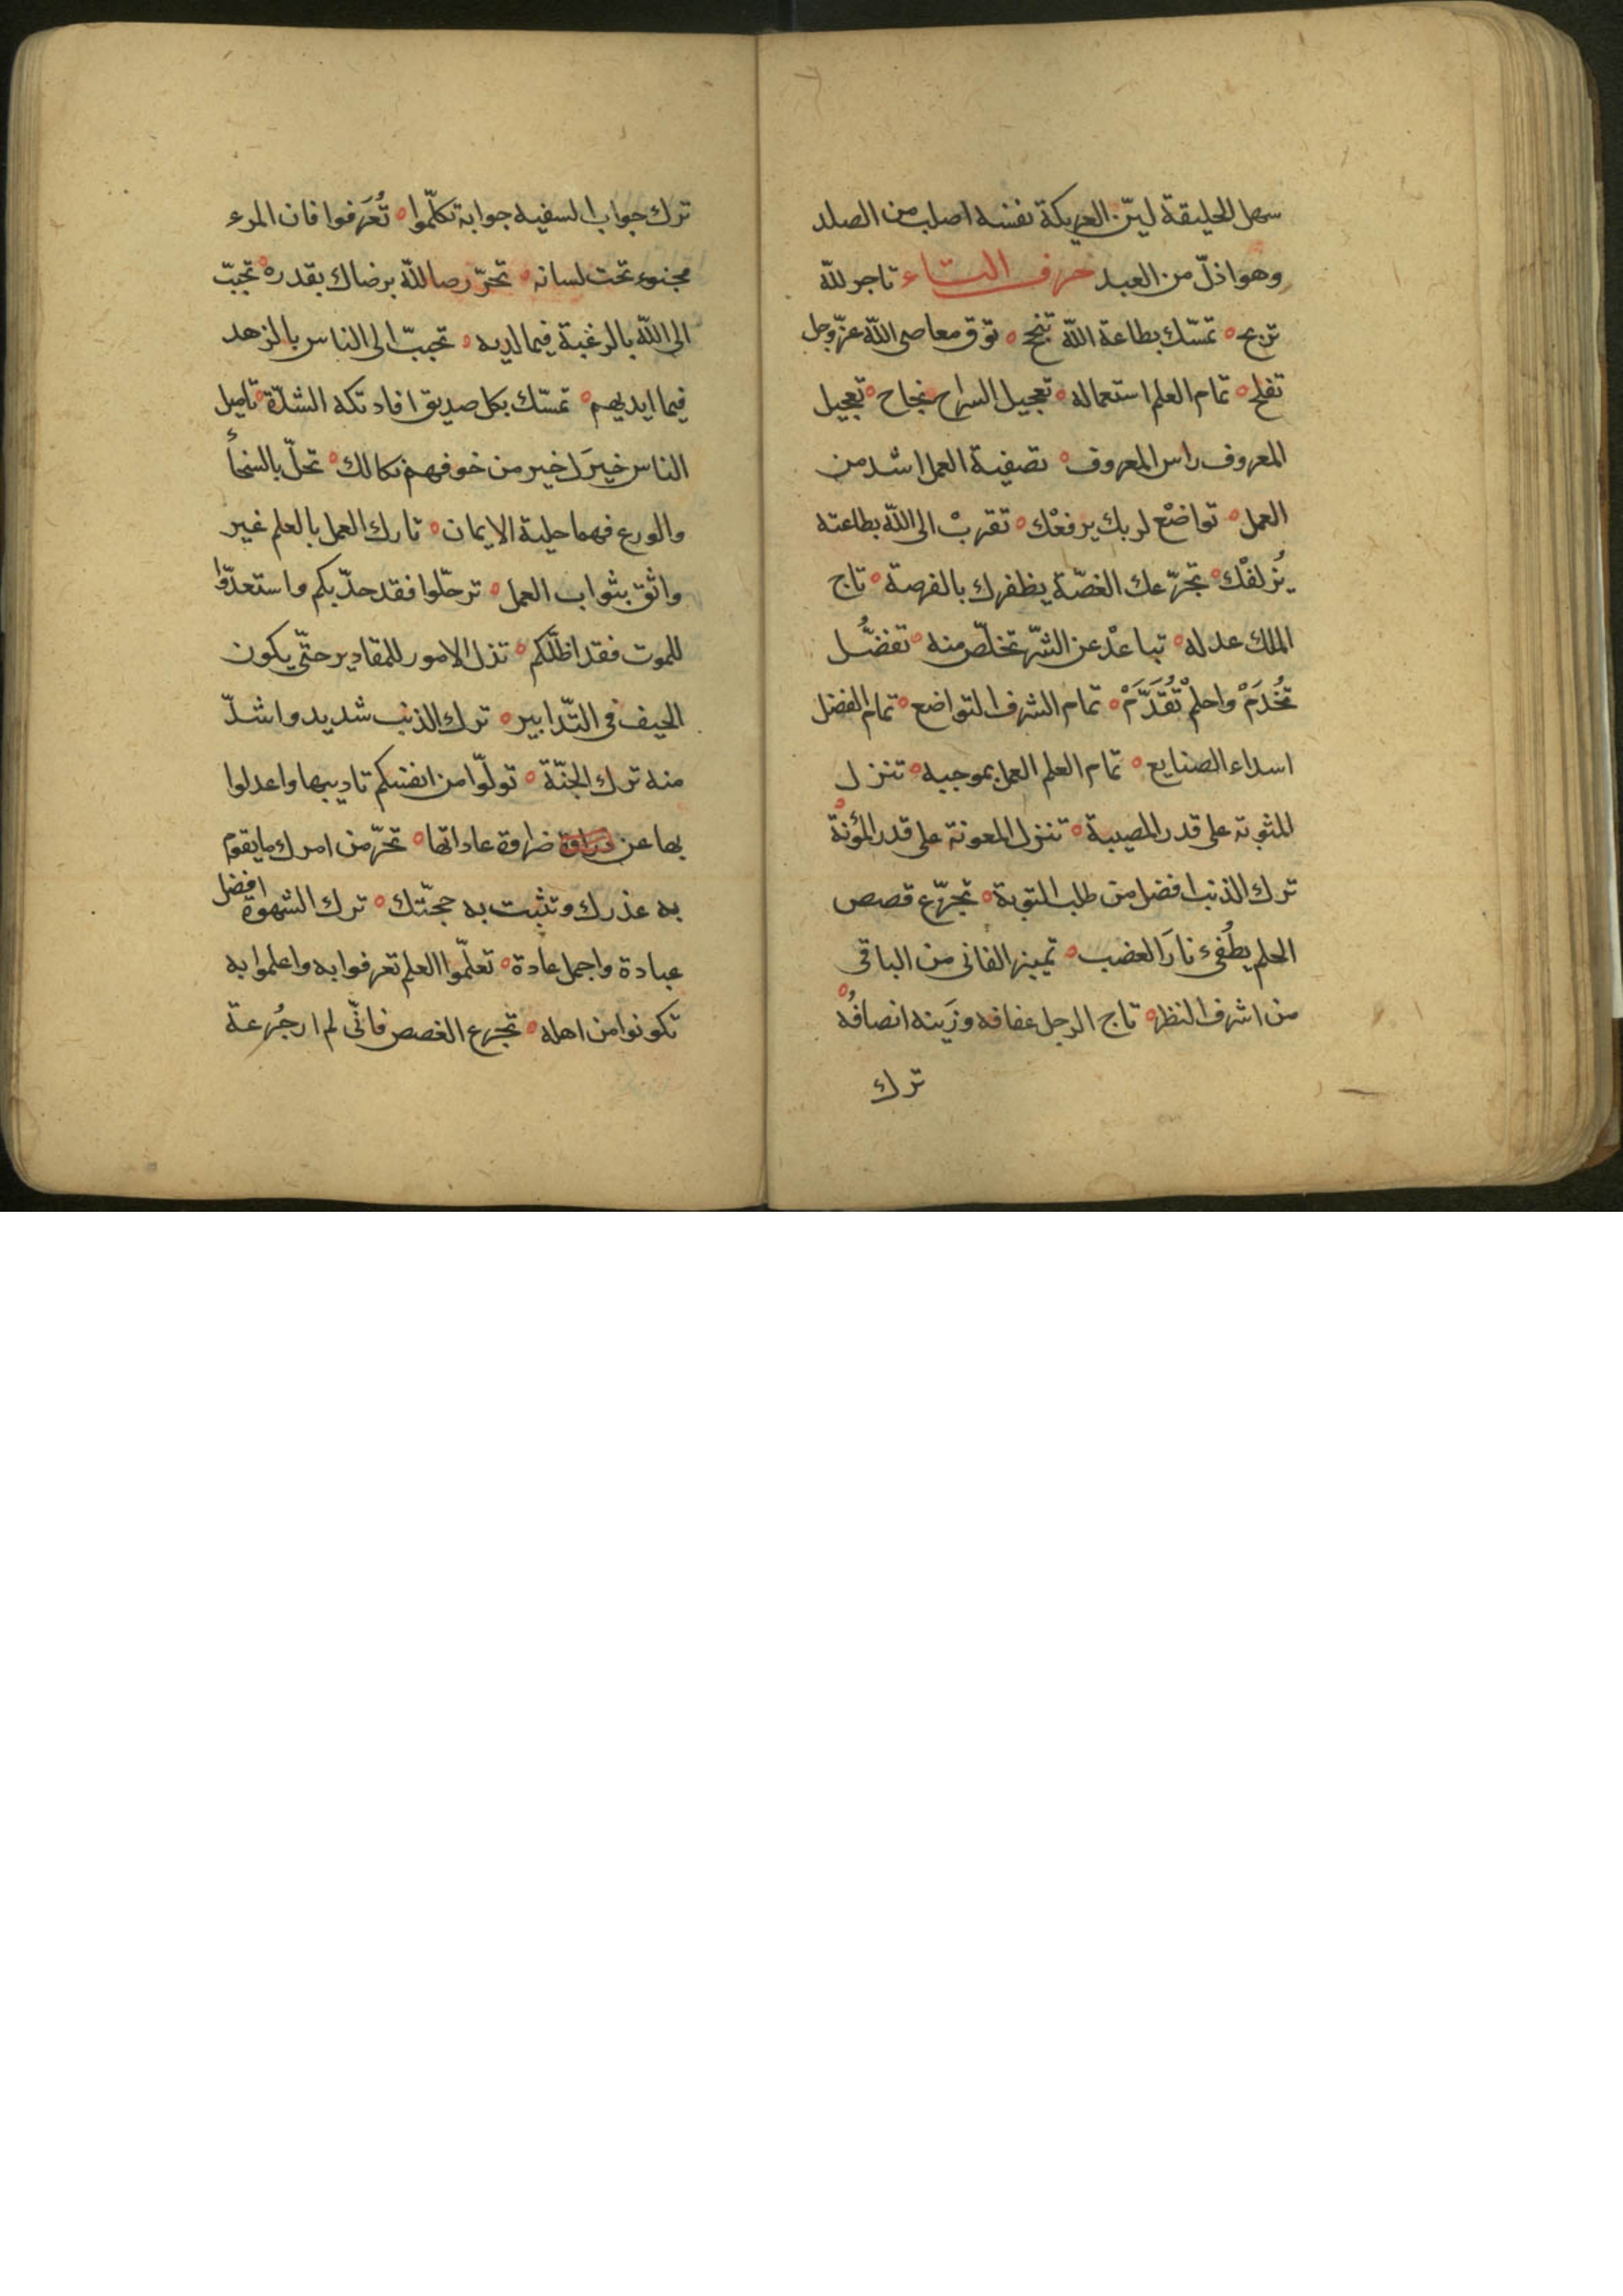 سهل الخليقة ليّن العريكة نفسه اصلب من الصلد
وهو اذلّ من العبد حرف التاء تاجر لله
تربح تمسّك بطاعة الله تنج توق معاصى الله عزّ وجل
تفلح تمام العلم استعماله تعجيل السراح نجاح تعجيل
المعروف راس المعروف تصفية العمل اشد من
العمل تواضعْ لربك يرفعْك تقربْ الى الله بطاعته
يُزلفْك تجرّعك الغصّة يظفرك بالفرصة تاج
الملك عدله تباعدْ عن الشرّ تخلّص منه تفضَّل
تُخْدَمْ واحلمْ تُقَدَّمْ تمام الشرف التواضع تمام الفضل
اسداء الصنايع تمام العلم العمل بموجبه تنزل
المثوبة على قدر المصيبة تنزل المعونة على قدر المؤنة
ترك الذنب افضل من طلب التوبة تجرّع قصص
الحلم يطُفىء نارَ الغضب تميز الفانى من الباقى
من اشرف النظر تاج الرجل عفافه وزَينه انصافُه
ترك
ترك جواب السفيه جوابه تكلّموا تُعَرفوا فان المرء
مخبوء تحت لسانه تحرّ رضا لله برضاك بقدره تحبّب
الى الله بالرغبة فيما لديه تحببّ الى الناس بالزهد
فيما ايديهم تمسّك بكل صديق افادتكه الشدّة تاميل
الناس خيرَك خير من خوفهم نكالك تحلّ بالسخأ
والورع فهما حلية الايمان تارك العمل بالعلم غير
واثق بثواب العمل ترحّلوا فقد حدّ بكم واستعدّوا
للموت فقد اظلّكم تذل الامور للمقادير حتّى يكون
الحيف فى التّدابير ترك الذنب شديد واشدّ
منه ترك الجنّة تولّوا من انفسكم تاديبها واعدلوا
بها عن ضراوة عاداتها تحرّ من امرك ما يقوم
به عذرك وتثبت به حجّتك ترك الشهوة افضل
عبادة واجمل عادة تعلّموا العلم تعرفوا به واعلموا به
تكونوا من اهله تجرع الغصص فانّى لم ار جُرعة